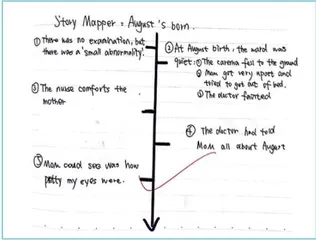 Story Mapper : August 's born.
① There was no examination, but
there was a 'small abnormality'.
② At August birth, the ward was
quiet: ① The camera fell to the ground
② Mom got very upset and
tried to get out of bed.
③ The doctor fainted
③ The nurse comforts the
mother
④ The doctor had told
Mom all about August
⑤ Mom could see was how
petty my eyes were.